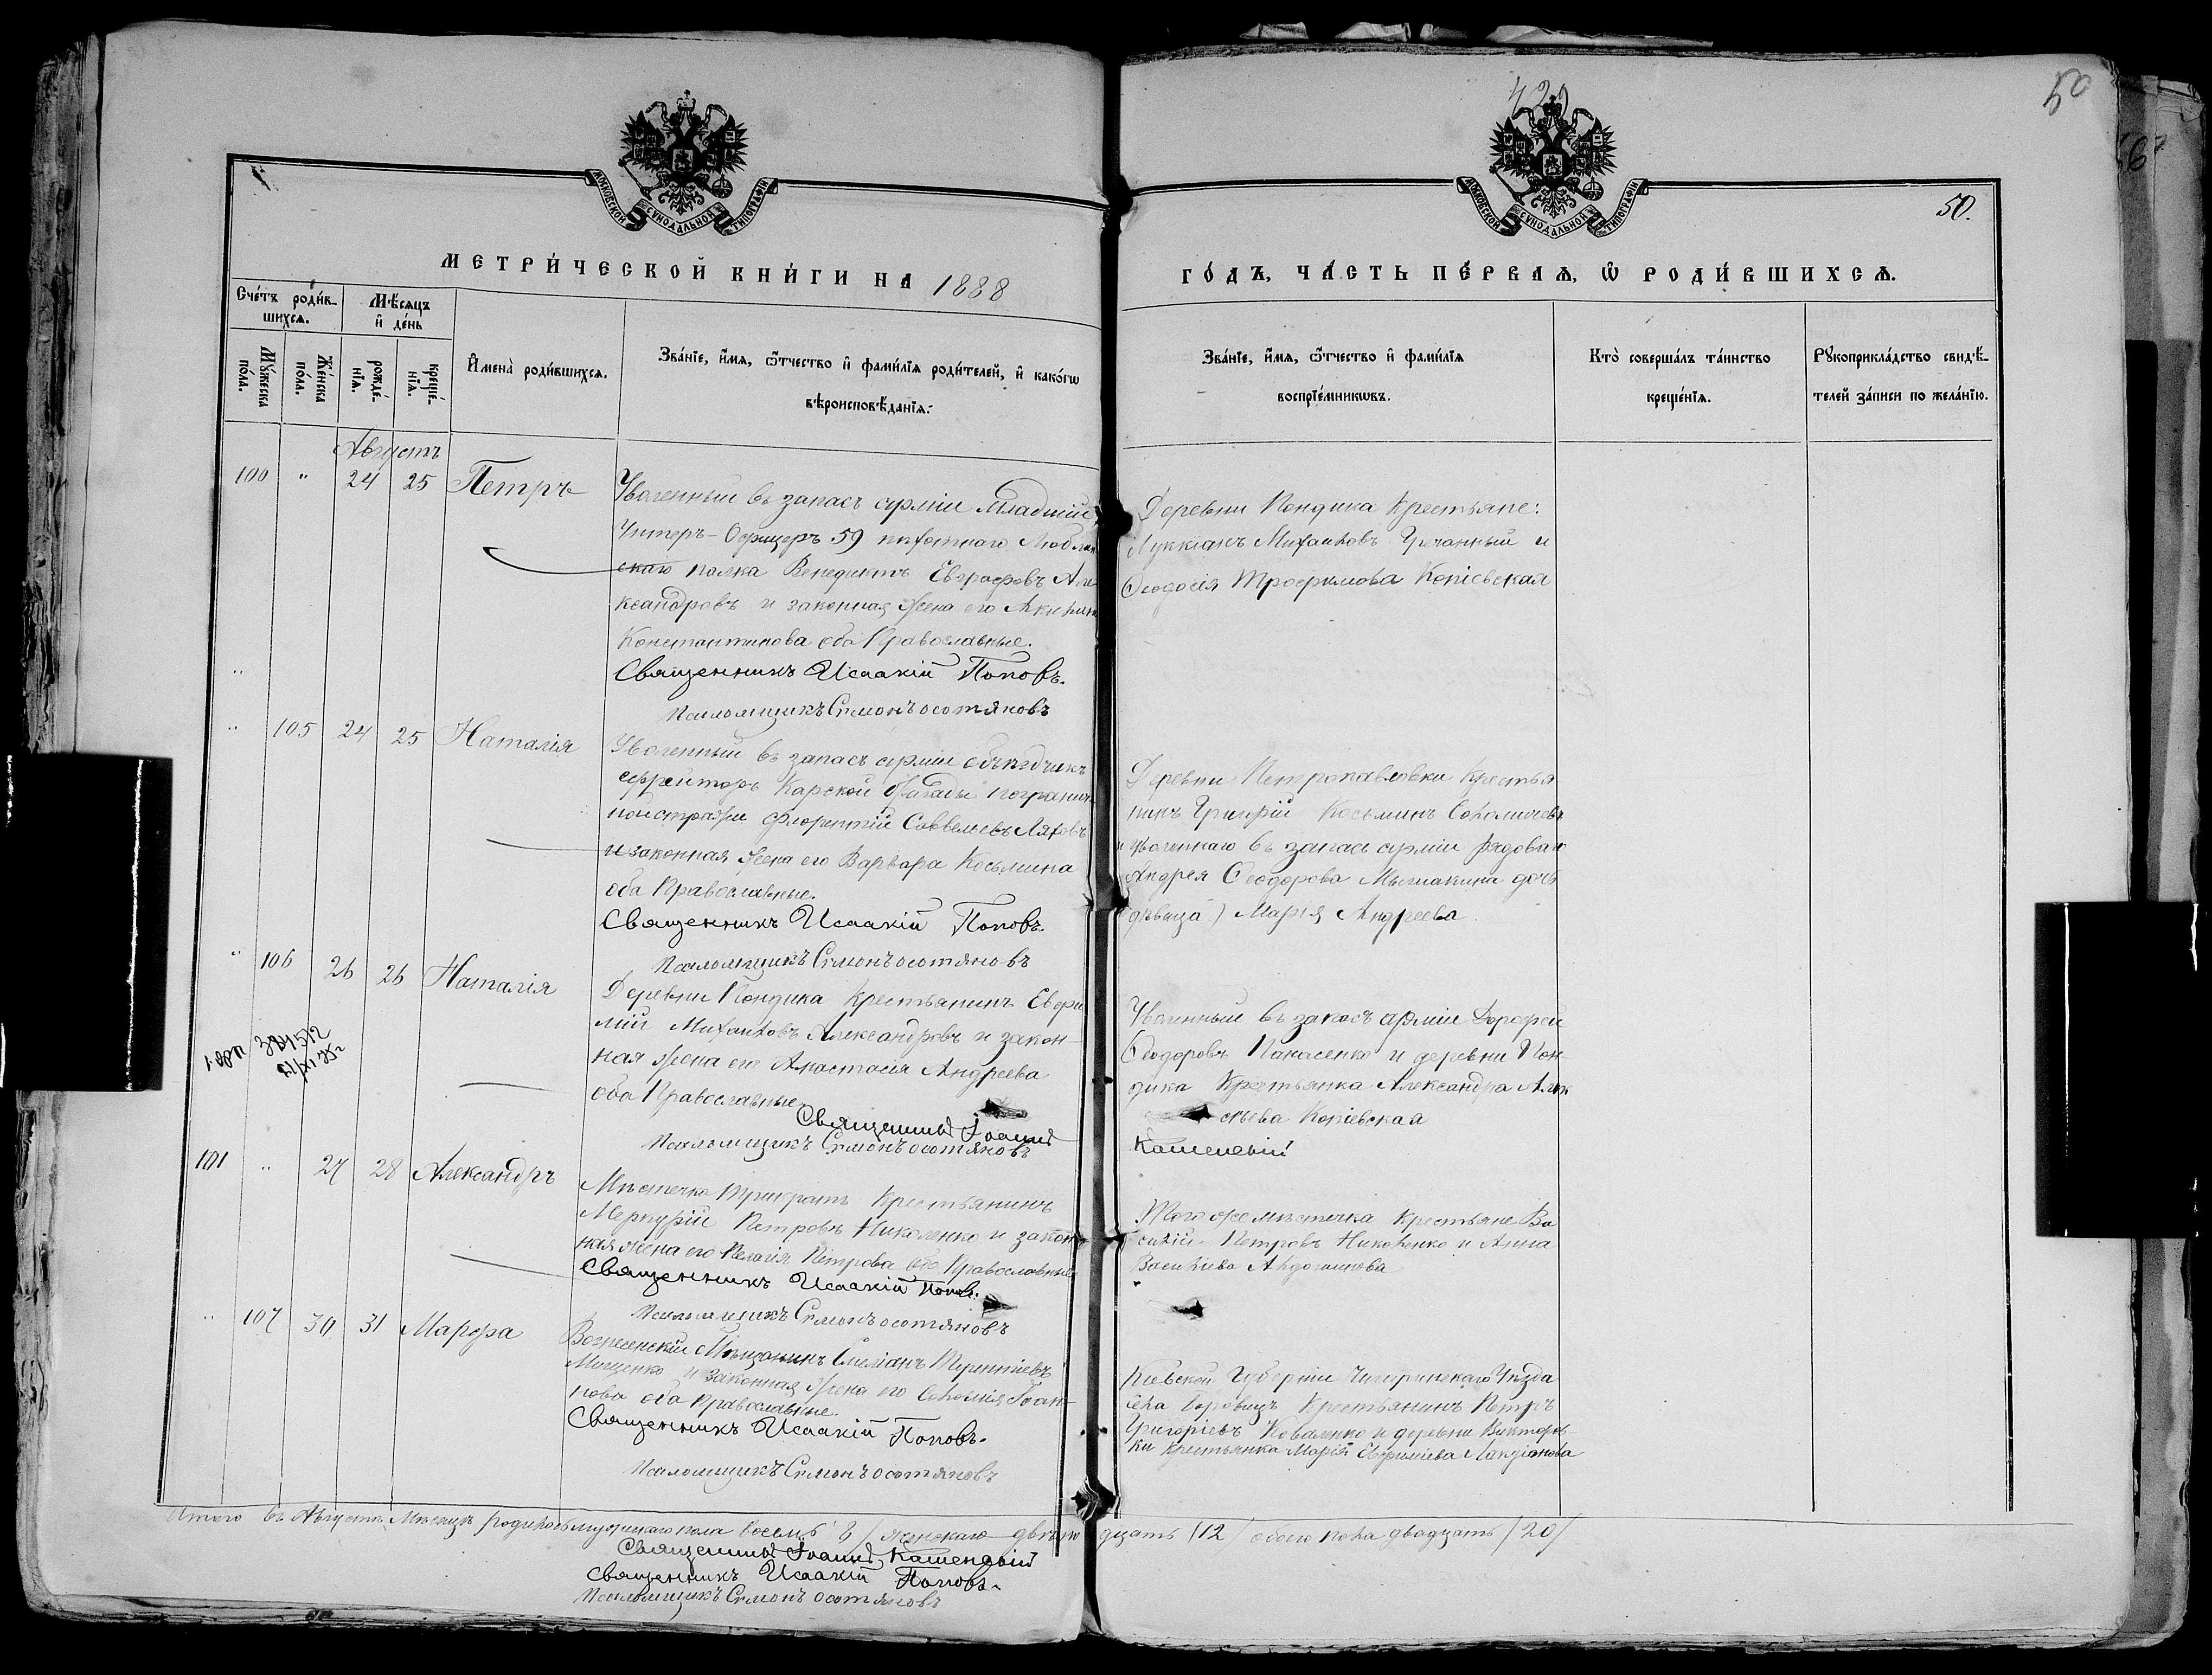 420
50
50.
МОСКОВСКОЙ СѴНОДАЛЬНОЙ ТИПОГРАФІИ
МОСКОВСКОЙ СѴНОДАЛЬНОЙ ТИПОГРАФІИ
МЕТРИ́ЧЕСКОЙ КНИ́ГИ НА 1888
ГО́ДЪ, ЧА́СТЬ ПЕ́РВАѦ, Ѡ РОДИ́ВШИХСѦ.
Сче́тъ роди́вшихсѧ.
Мѣ́сѧцъ и҆ де́нь
Мꙋ́жеска по́ла.
Же́нска по́ла.
рожде́нїѧ.
креще́нїѧ.
И҆мена̀ роди́вшихсѧ.
Зва́нїе, и҆́мѧ, ѻ҆́тчество и҆ фами́лїѧ роди́телей, и҆ како́гѡ
вѣроисповѣ́данїѧ.
Зва́нїе, и҆́мѧ, ѻ҆́тчество и҆ фами́лїѧ
воспрїе́мникѡвъ.
Кто̀ соверша́лъ та́инство
креще́нїѧ.
Рꙋкоприкла́дство свидѣ́-
телей за́писи по жела́нїю.
Августъ
100 " 24 25 Петръ
Уволенный въ запасъ арміи Младшій
Унтеръ-Офицеръ 59 пѣхотнаго Люблин
скаго полка Венедиктъ Евграфовъ Але
ксандровъ и законная жена его Акилина
Константинова оба Православные.
Священникъ Исаакій Поповъ.
Псаломщикъ Симонъ Осотяновъ
Деревни Кондика Крестьяне:
Лукіанъ Михаиловъ Гречанный и
Ѳеодосія Трофимова Копіевская
" 105 24 25 Наталія
Уволенный въ запасъ арміи объѣздчикъ
ефрейторъ Карской бригады погранич
ной стражи Флорентій Саввельевъ Ляховъ
и законная жена его Варвара Косьмина
оба Православные.
Священникъ Исаакій Поповъ.
Псаломщикъ Симонъ Осотяновъ
Деревни Петропавловки Крестья
нинъ Григорій Косьминъ
и уволеннаго въ запасъ арміи рядоваго
Андрея Ѳеодорова дочь
(дѣвица) Марія Андреева.
" 106 26 26 Наталія
Деревни Кондика Крестьянинъ Евфи
мій Михаиловъ Александровъ и закон-
ная жена его Анастасія Андреева
оба Православные.
Священникъ Іоаннъ
Псаломщикъ Симонъ Осотяновъ
Уволенный въ запасъ арміи Дорофей
Ѳеодоровъ Панасенко и деревни Кон-
дика Крестьянка Александра Алек
сѣева Копіевская
101 " 27 28 Александръ
Мѣстечка Трикратъ Крестьянинъ
Меркурій Петровъ Николенко и закон
ная жена его Пелагія Петрова оба Православные
Священникъ Исаакій Поповъ.
Псаломщикъ Симонъ Осотяновъ
Того же мѣстечка Крестьяне Ва
силій Петровъ Николенко и Анна
Василіева
" 107 30 31 Марфа
Вознесенскій Мѣщанинъ Терентіевъ
Мищенко и законная жена его Соломія Іоан-
нова оба Православные.
Священникъ Исаакій Поповъ.
Псаломщикъ Симонъ Осотяновъ
Кіевской Губерніи Чигиринскаго Уѣзда
села Боровицъ Крестьянинъ Петръ
Григоріевъ Коваленко и деревни Викторов
ки Крестьянка Марія Евфиміева
Итого въ Августѣ Мѣсяцѣ родилось мужескаго пола восемь 8/ женскаго двѣна дцать /12/ обоего пола двадцать /20/
Священникъ Іоаннъ
Священникъ Исаакій Поповъ.
Псаломщикъ Симонъ Осотяновъ